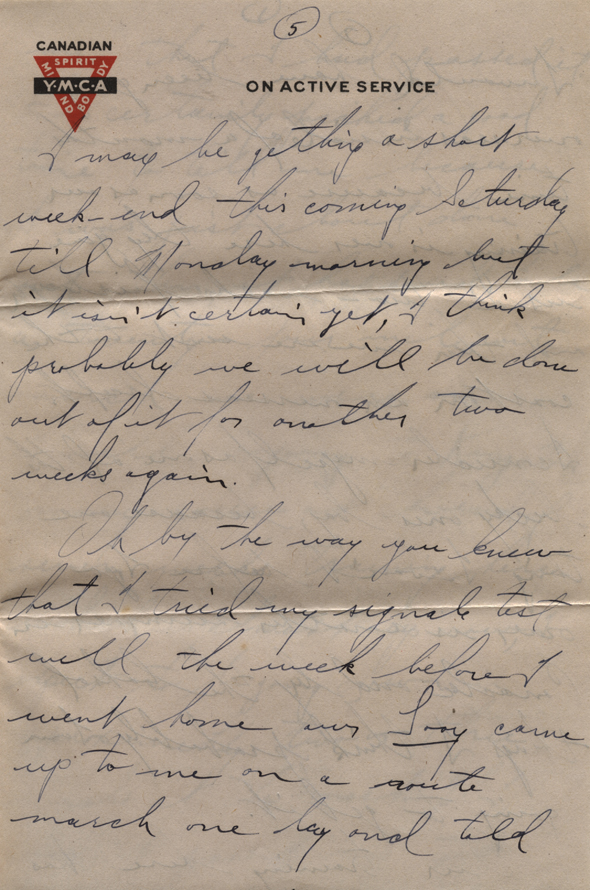 5
CANADIAN
SPIRIT
MIND
BODY
Y·M·C·A
ON ACTIVE SERVICE
I may be getting a short
week-end this coming Saturday
till Monday morning but
it isn't certain yet, I think
probably we will be done
out of it for another two
weeks again.
Oh by the way you knew
that I tried my signals test
well the week before I
went home our came
up to me on a route
march one day and told